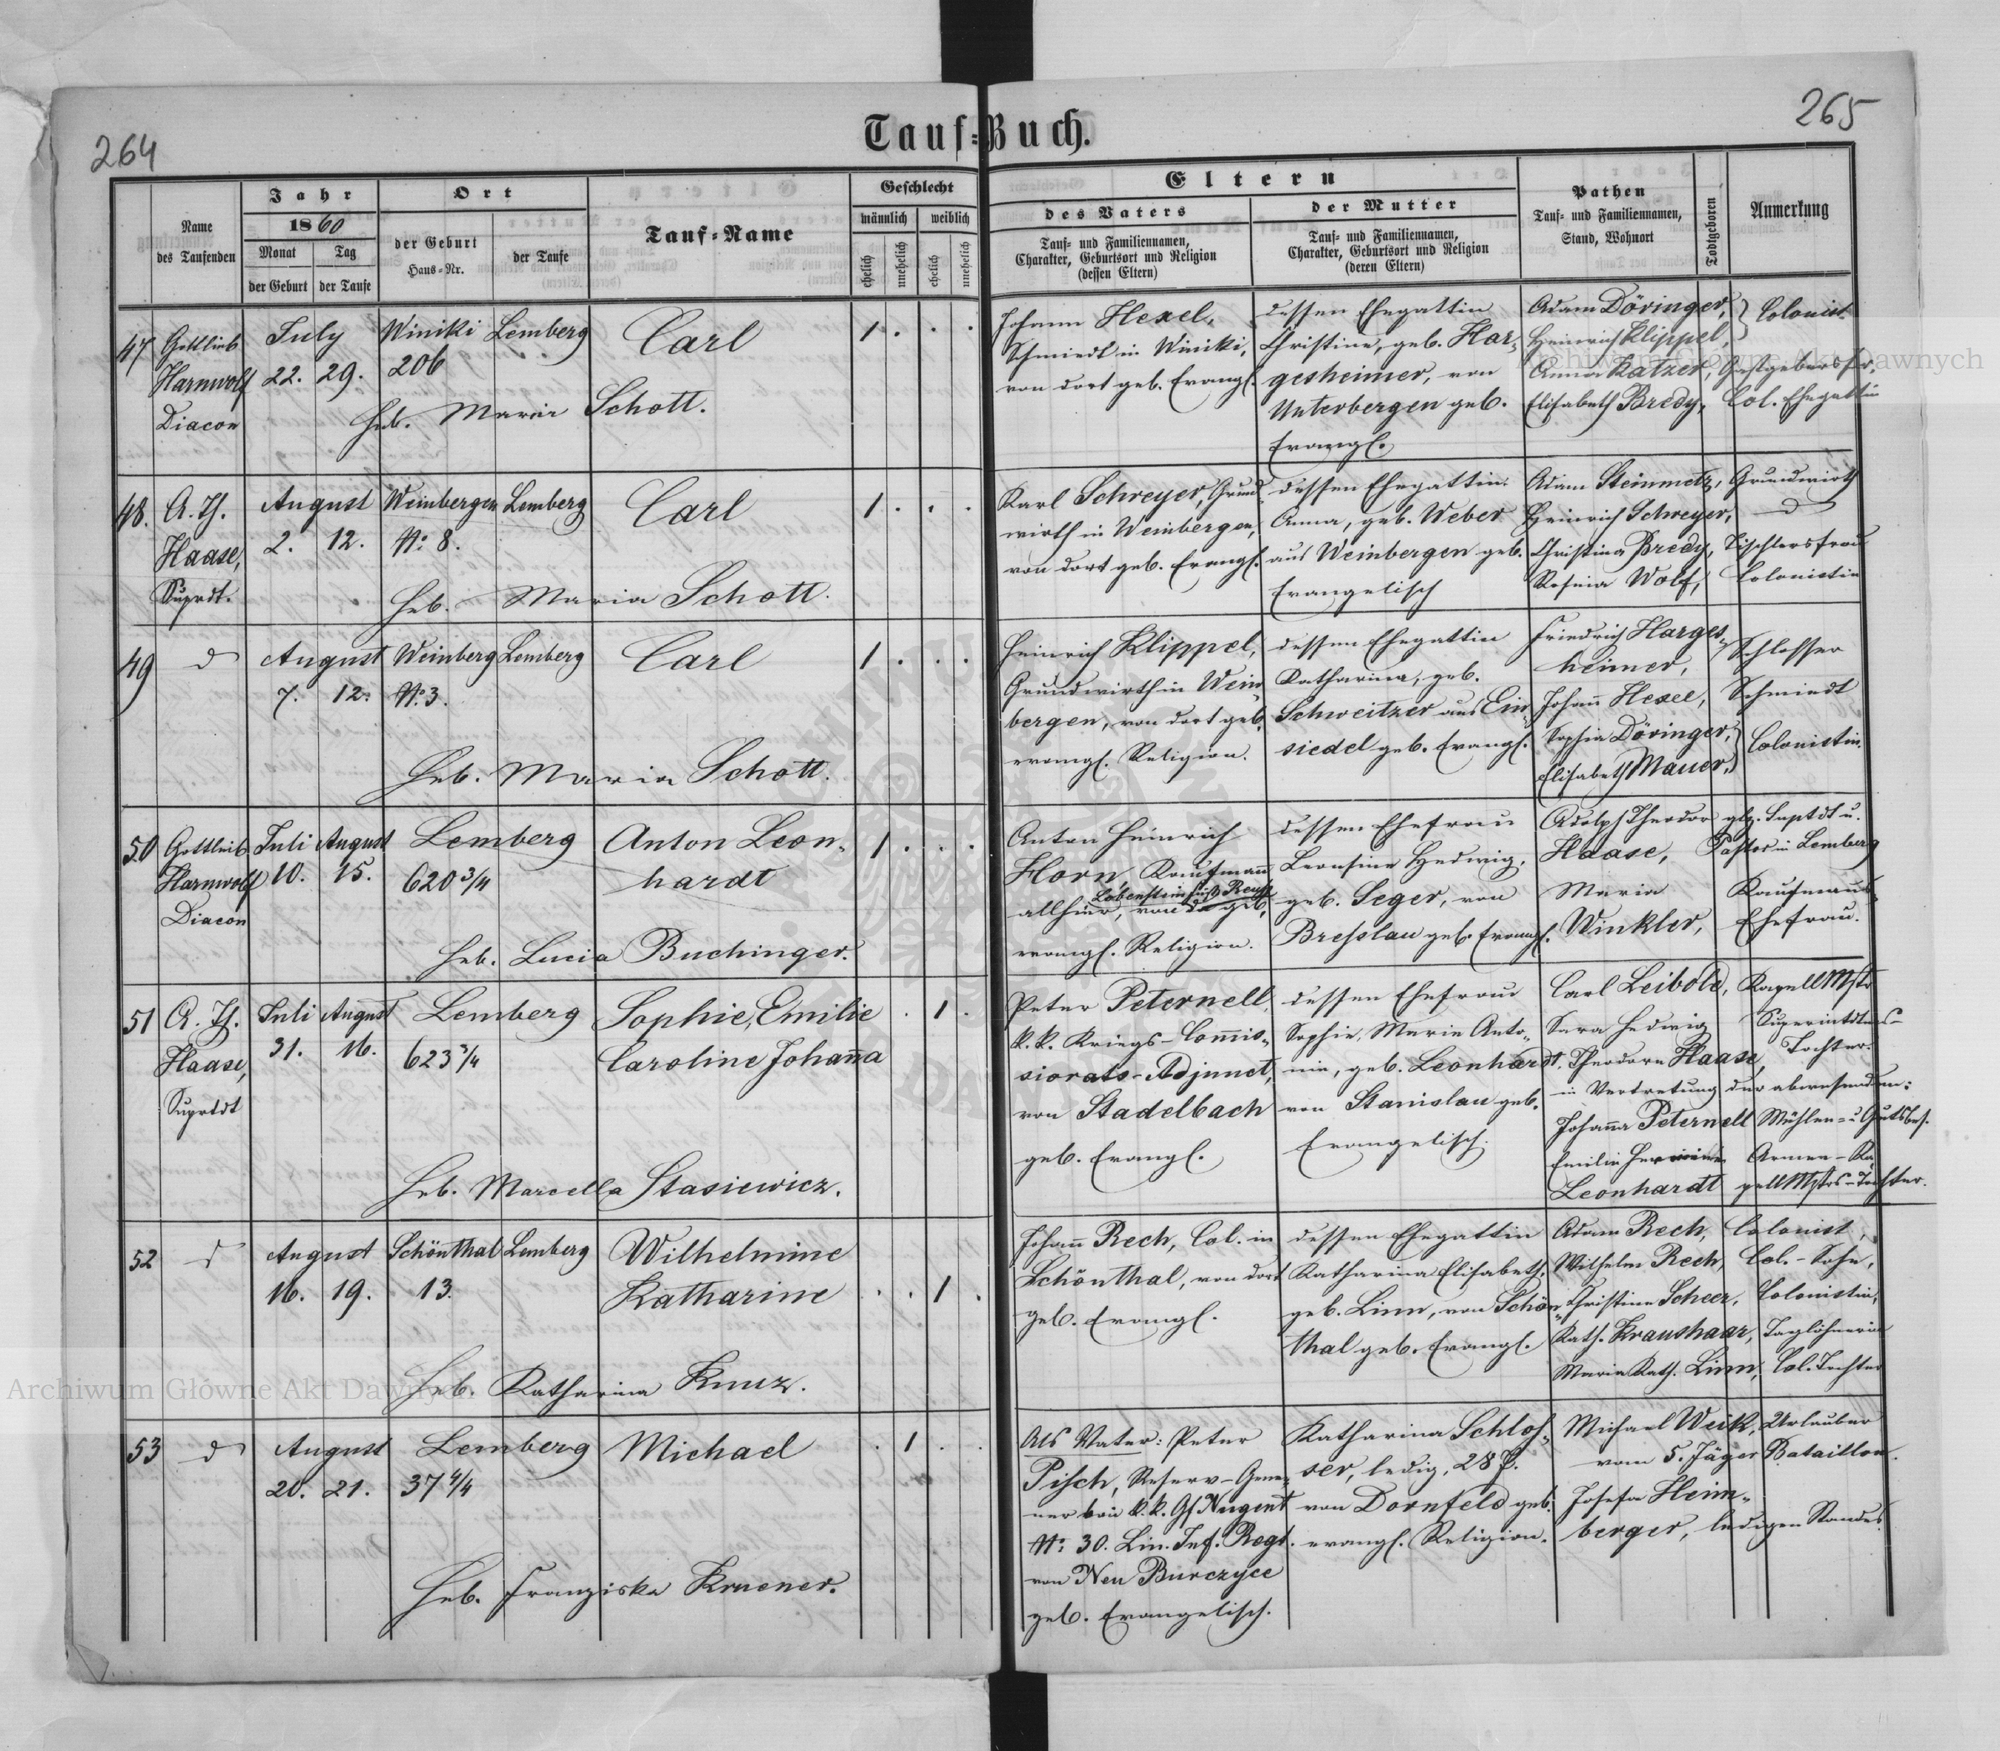 264
265
Tauf-Buch.
Name
des Taufenden
Jahr
1860
Monat
Tag
der Geburt
der Taufe
Ort
der Geburt
Haus-Nr.
der Taufe
Tauf-Name
Geschlecht
männlich
weiblich
ehelich
unehelich
ehelich
unehelich
Eltern
des Vaters
Tauf- und Familiennamen,
Charakter, Geburtsort und Religion
(dessen Eltern)
der Mutter
Tauf- und Familiennamen,
Charakter, Geburtsort und Religion
(deren Eltern)
Pathen
Tauf- und Familiennamen,
Stand, Wohnort
Todtgeboren
Anmerkung
47
Gottlieb
Harnwolf
Diacon
July
22. 29.
Winiki
206
Lemberg
Carl
1 . . .
Heb. Maria Schott.
Johann Hexel,
Schmiedt in Winiki,
von dort geb. Evangl.
dessen Ehegattin
Christine, geb. Har-
gesheimer, von
Unterbergen geb.
Evangl.
Adam Döringer,
Heinrich Klippel,
Anna Katzer,
Elisabeth Bredy,
Colonist.
Gastgebersfr.
Col. Ehegattin
48.
A. Th.
Haase,
Suprdt.
August
2. 12.
Weinbergen
No: 8.
Lemberg
Carl
1 . . .
Heb. Maria Schott.
Karl Schreyer, Grund-
wirth in Weinbergen,
von dort geb. Evangl.
dessen Ehegattin
Anna, geb. Weber
aus Weinbergen geb.
Evangelisch
Adam Steinmetz, Grundwirth
Heinrich Schreyer, do
Christina Bredy, Tischlersfrau
Rosina Wolf, Colonistin
49
do
August
7. 12.
Weinberg
No. 3.
Lemberg
Carl
1 . . .
Heb. Maria Schott.
Heinrich Klippel,
Grundwirth in Wein-
bergen, von dort geb.
evangl. Religion.
dessen Ehegattin
Katharina, geb.
Schweitzer aus Ein-
siedel geb. Evangl.
Friedrich Harges-
heimer, Schlosser
Johann Hexel, Schmiedt
Sophia Döringer,
Elisabeth Mauer,
Colonistin.
50
Gottlieb
Harnwolf
Diacon
Juli August
10. 15.
Lemberg
620 3/4
Anton Leon-
hardt
1 . . .
Heb. Lucia Buchinger.
Anton Heinrich
Horn, Kaufmann
Lobenstein Fürst. Reuß
allhier, von da geb.
evangl. Religion.
dessen Ehefrau
Leonsine Hedwig,
geb. Seger, von
Bresslau geb. Evangl.
Adolph Theodor
Haase,
glz. Suptdt u.
Pastor in Lemberg
Maria
Winkler,
Kaufmanns
Ehefrau.
51
A. Th.
Haase,
Suprtdt
Juli August
31. 16.
Lemberg
623 3/4
Sophie, Emilie
Caroline Johanna
. 1 .
Heb. Marcella Stasiewicz.
Peter Peternell,
k. k. Kriegs-Commis-
siorats-Adjunct,
von Stadelbach
geb. Evangl.
dessen Ehefrau
Sophie, Marie Anto-
nie, geb. Leonhardt,
von Stanislau geb.
Evangelisch.
Carl Leibold, KapellMstr
Sara Hedwig Superintdtens-
Theodora Haase, Tochter.
in Vertretung der abwesenden:
Johanna Peternell Mühlen- u Gutsbes.
Emilie Hermine Armee-Ka-
Leonhardt pellMstrs-Tochter.
52
do
August
16. 19.
Schönthal
13.
Lemberg
Wilhelmine
Katharine
. . 1 .
Heb. Katharina Kunz.
Johann Rech, Col. in
Schönthal, von dort
geb. Evangl.
dessen Ehegattin
Katharina Elisabeth,
geb. Linn, von Schön-
thal geb. Evangl.
Adam Rech, Colonist,
Wilhelm Rech, Col.-Sohn,
Christine Scheer, Colonistin,
Kath. Kraushaar, Taglöhnerin
Maria Kath. Linn, Col. Tochter
53
do
August
20. 21.
Lemberg
37 4/4
Michael
. 1 . .
Heb. Franziska Kruener.
Als Vater: Peter
Pisch, Reserv-Geme-
ner beim k. k. Gf Nugent
No: 30. Lin. Inf. Regt.
von Neu Burczyce
geb. Evangelisch.
Katharina Schlos-
ser, ledig, 28 J.
von Dornfeld geb.
evangl. Religion.
Michael Weik, Urlauber
vom 5. Jäger Bataillon.
Josefa Heim-
berger, ledigen Standes
Archiwum Główne Akt Dawnych
Archiwum Główne Akt Dawnych